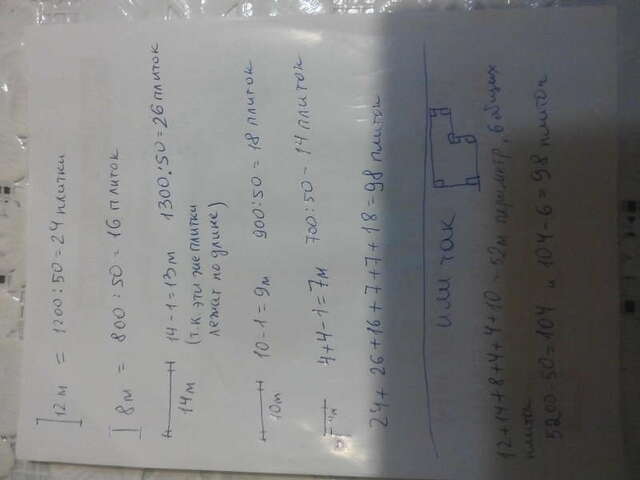 12 м = 1200 : 50 = 24 плитки
8 м = 800 : 50 = 16 плиток
14 м 14 - 1 = 13 м 1300 : 50 = 26 плиток
(т.к эти же плитки
лежат по длине)
10 м 10 - 1 = 9 м 900 : 50 = 18 плиток
4 м 4 + 4 - 1 = 7 м 700 : 50 - 14 плиток
24 + 26 + 16 + 7 + 7 + 18 = 98 плиток
или так
12 + 14 + 8 + 4 + 4 + 10 - 52 м периметр, 6 общих
плиток
5200 : 50 = 104 и 104 - 6 = 98 плиток